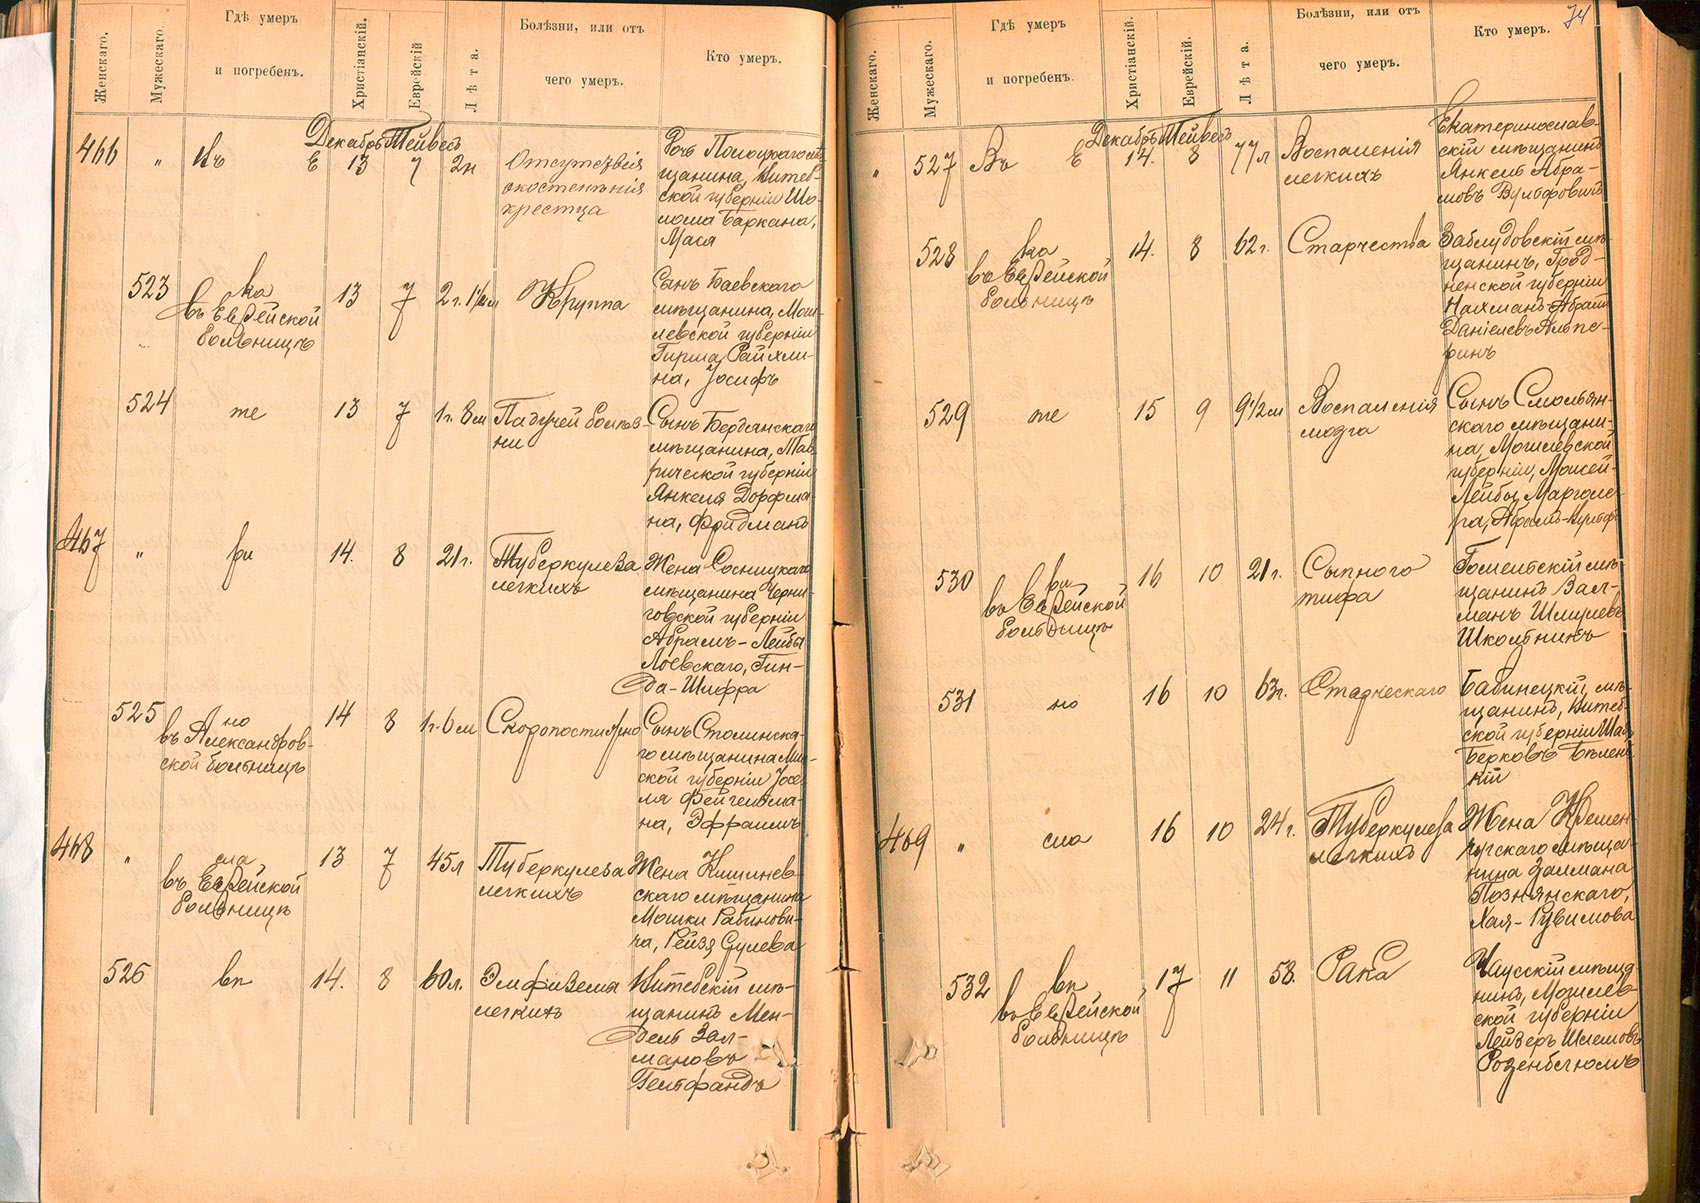 Женскаго.
Мужескаго.
Гдѣ умеръ
и погребенъ.
Христіанскій.
Еврейскій
Лѣта.
Болѣзни, или отъ
чего умеръ.
Кто умеръ.
Декабрь Тейвесъ
466 " Е 13 7 2н
Отсутствія
окостенѣнія
крестца
Дочь Полоцкаго мѣ-
щанина, Витеб-
ской губерніи Шо-
лома Баркана,
Мася
523
въ Еврейской
больницѣ
13 7
Круппа
Сынъ Баевскаго
мѣщанина, Моги-
левской губерніи
Гирша Райхли-
на, Іосифъ
524 те 13 7 1г. 8м
Падучей болѣз-
ни
Сынъ Бердянскаго
мѣщанина, Тав-
рической губерніи
Янкеля Дорфма-
на, Фридманъ
467 " ри 14. 8 21г.
Туберкулеза
легкихъ
Жена Сосницкаго
мѣщанина Черни-
говской губерніи
Абрамъ-Лейбы
Лоевскаго, Гин-
да-Шифра
525 но
въ Александров-
ской больницѣ
14 8 1г. 6м
Скоропостижно
Сынъ Столинска-
го мѣщанина Мин-
ской губерніи Іосе-
ля Фейгельма-
на, Эфраимъ
468 " сла
въ Еврейской
больницѣ
13 7 45л
Туберкулеза
легкихъ
Жена Кишинев-
скаго мѣщанина
Мошки Рабинови-
ча, Рейзя Сулева
526 вл 14. 8 60л.
Эмфизема
легкихъ
Витебскій мѣ-
щанинъ Мен-
дель Зал-
мановъ
Гельфандъ
74
Женскаго.
Мужескаго.
Гдѣ умеръ
и погребенъ.
Христіанскій.
Еврейскій.
Лѣта.
Болѣзни, или отъ
чего умеръ.
Кто умеръ.
Декабрь Тейвесъ
" 527 Въ Е 14. 8 77л
Воспаленія
легкихъ
Екатеринослав-
скій мѣщанинъ
Анкель Абра-
мовъ Вульфовичъ
528 ка
въ Еврейской
больницѣ
14. 8 62г.
Старчества
Заблудовскій мѣ-
щанинъ, Грод-
ненской губерніи
Нахманъ-Абрамъ
Даніелевъ Альпе-
ринъ
529 те 15 9 9½м
Воспаленія
мозга
Сынъ Смольян-
скаго мѣщани-
на, Могилевской
губерніи, Мовсей-
Лейбы Марголе-
530 ри
въ Еврейской
больницѣ
16 10 21г.
Сыпного
тифа
Гомельскій мѣ-
щанинъ Зал-
манъ Шмулевъ
Школьникъ
531 но 16 10 63г.
Старческаго
Бабинецкій мѣ-
щанинъ, Витеб-
ской губерніи
Берковъ Бѣлень-
кій
469 " сла 16 10 24г.
Туберкулеза
легкихъ
Жена Кремен-
чугскаго мѣща-
нина Залмана
Познянскаго,
Хая-Рувимова
532 вл
въ Еврейской
больницѣ
17 11 58.
Рака
Чаусскій мѣща-
нинъ, Могилев-
ской губерніи
Лейзеръ Шлемовъ
Розенблюмъ